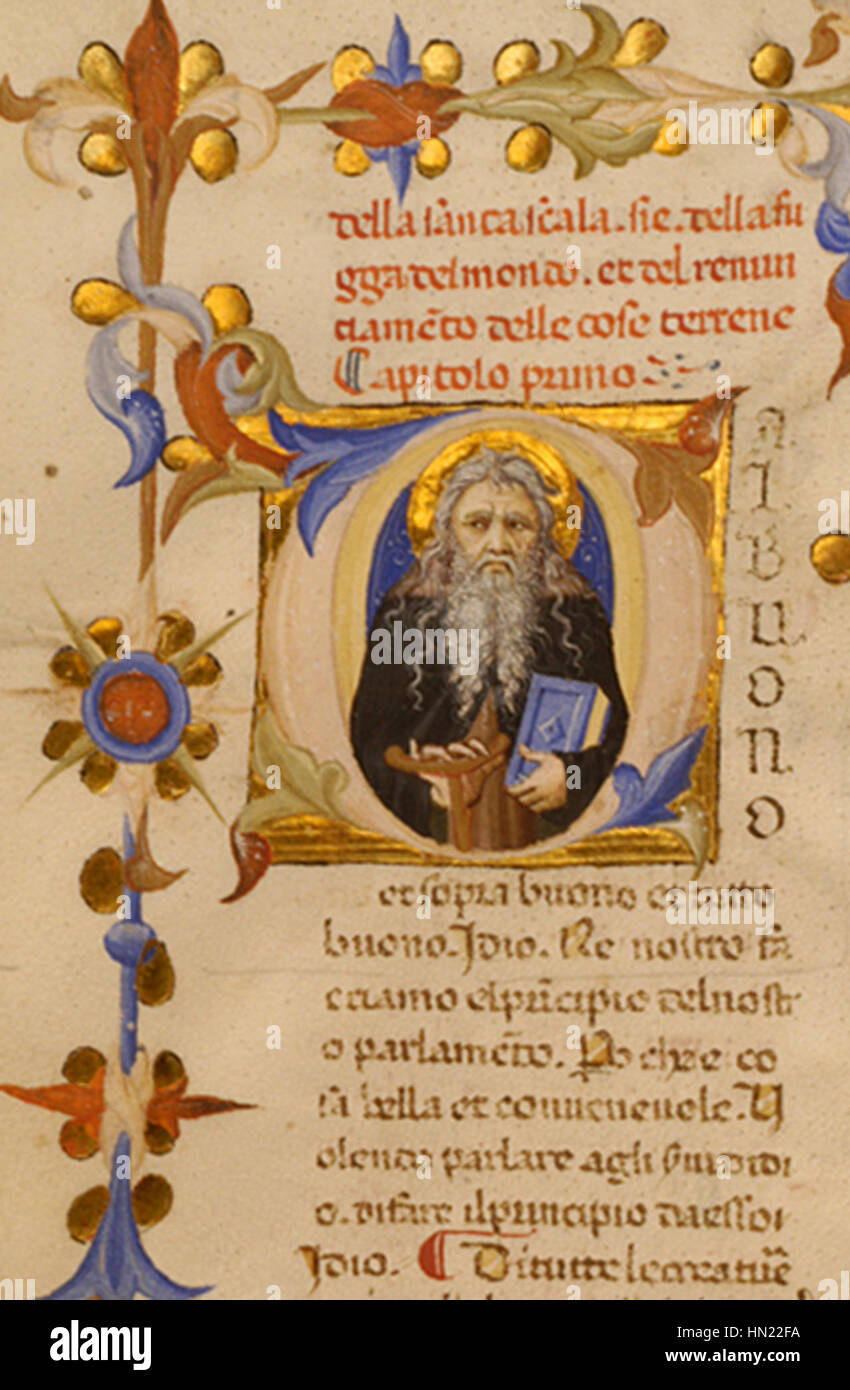 della sancta scala. sie. della fu
gga del mondo. et del renun
ciamēto delle cose terrene
Capitolo primo
AlBUONO
et sopra buono et tutto
buono. Idio. Re nostro fa
cciamo el prīcipio del nostr
o parlamēto. Po che e co
sa bella et conueneuole. U
olendo parlare agli serui di di
o. di fare il principio da esso
Idio. Di tutte le creatue
alamy
Image ID: HN22FA
www.alamy.com